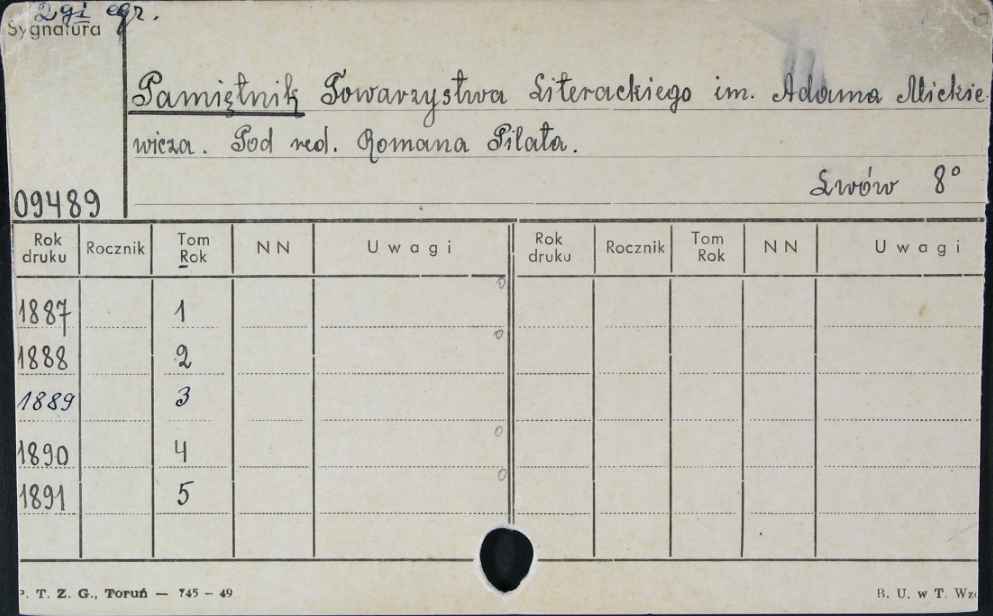 2gi egz.
Sygnatura
Pamiętnik Towarzystwa Literackiego im. Adama Mickie-
wicza. Pod red. Romana Piłata.
Lwów 8°
09489
Rok druku Rocznik Tom Rok NN Uwagi Rok druku Rocznik Tom Rok NN Uwagi
1887 1
1888 2
1889 3
1890 4
1891 5
P. T. Z. G., Toruń — 745 – 49 B. U. w T. Wz